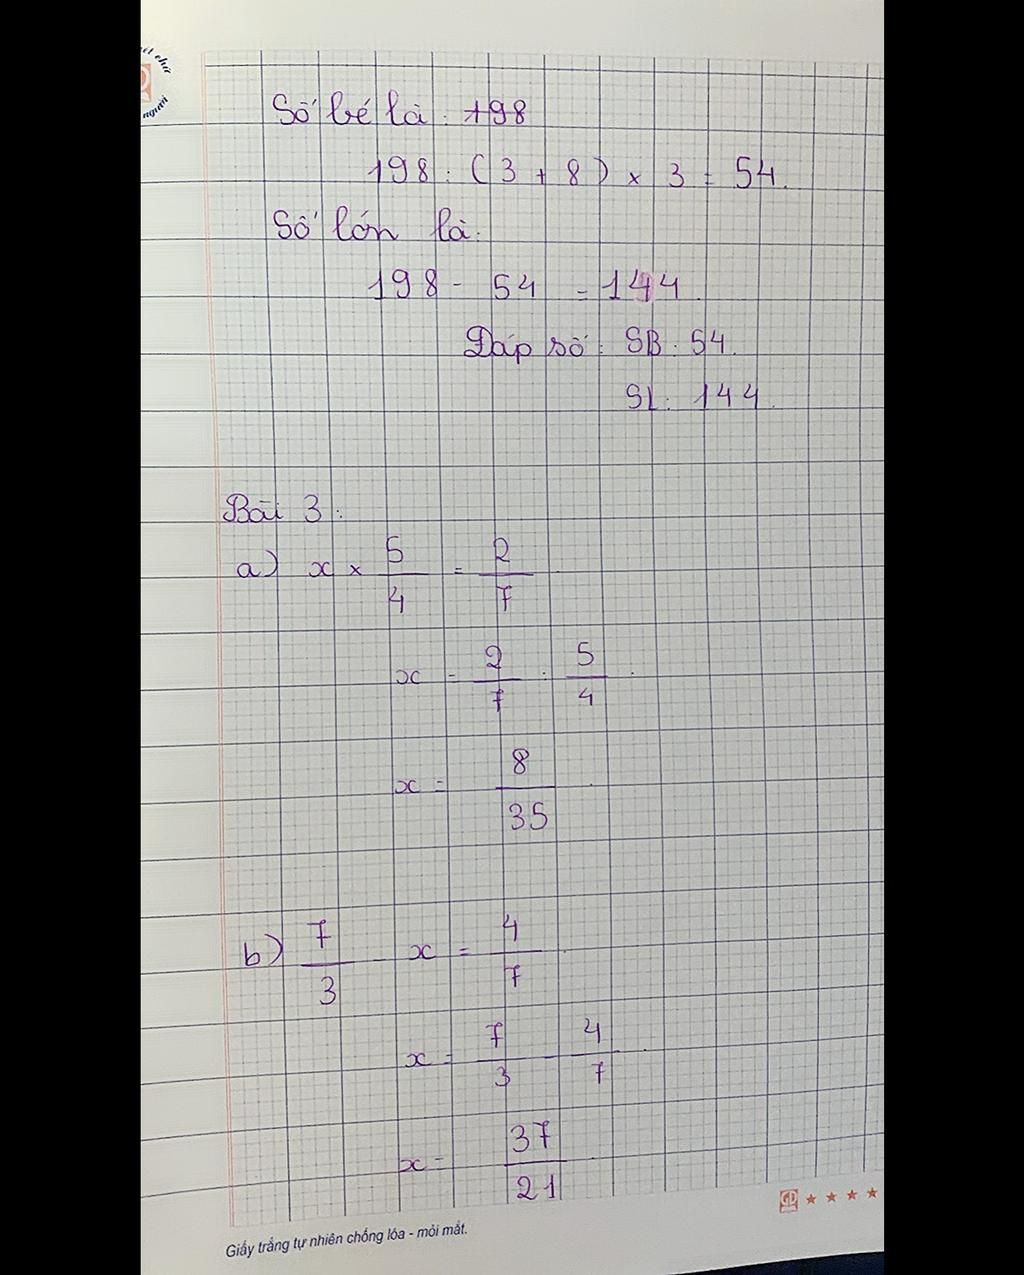 ết chữ
người
Số bé là: 198
198 : (3 + 8) × 3 = 54.
Số lớn là:
198 - 54 = 144.
Đáp số: SB: 54.
SL: 144.
Bài 3:
a) x × 5/4 = 2/7
x = 2/7 : 5/4
x = 8/35
b) 7/3 - x = 4/7
x = 7/3 - 4/7
x = 37/21
Giấy trắng tự nhiên chống lóa - mỏi mắt.